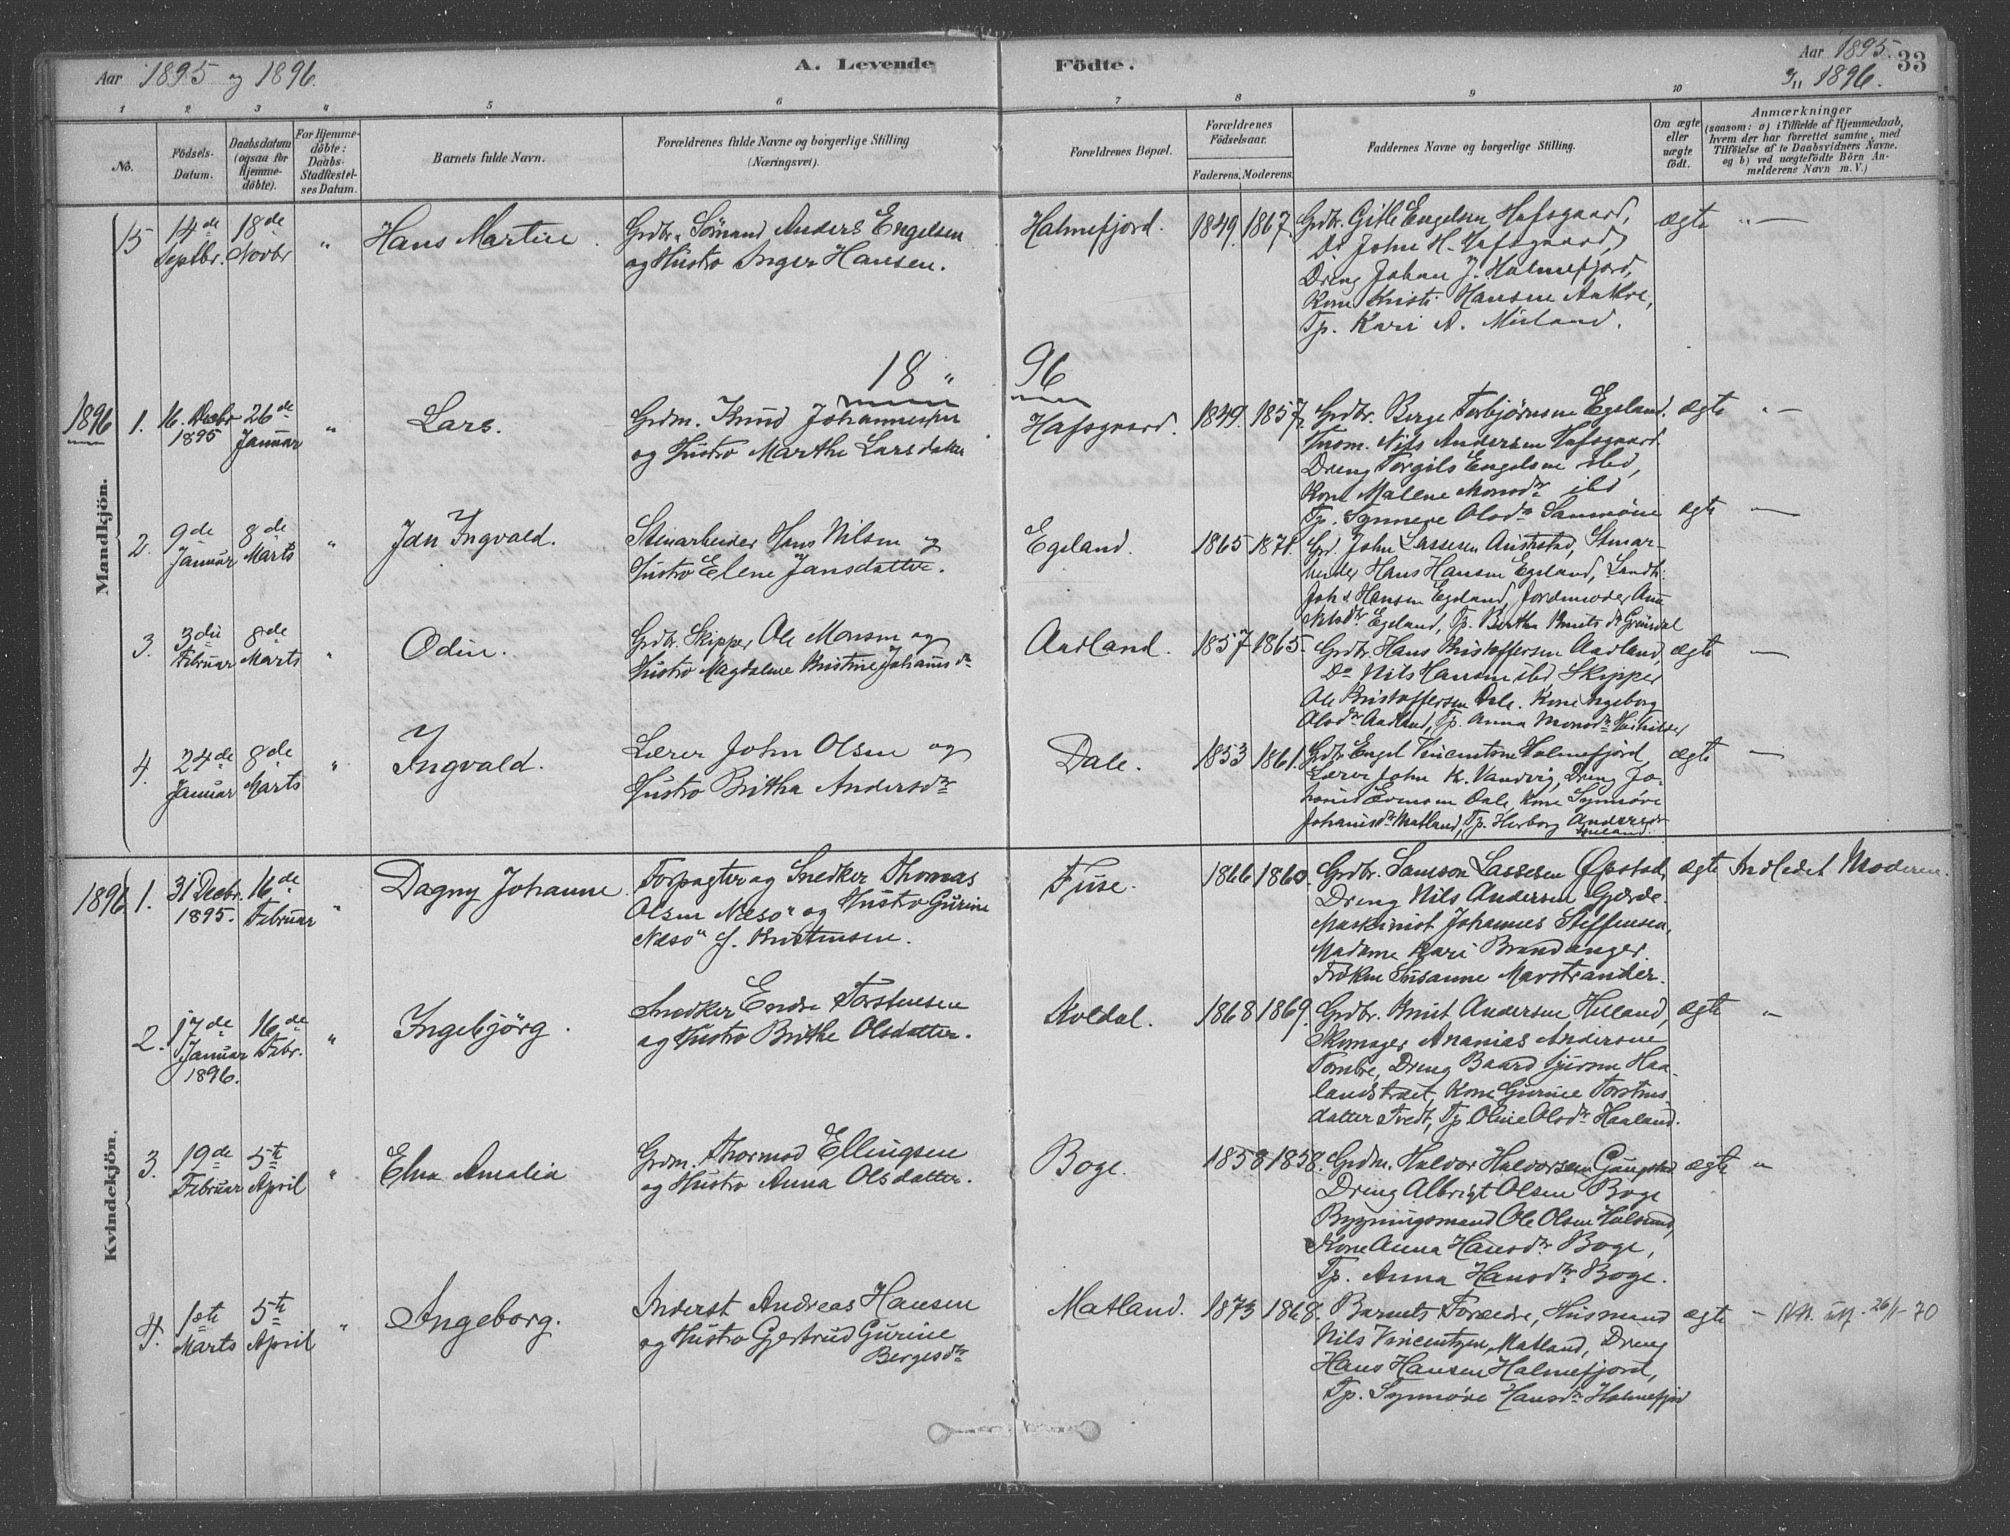 Aar 1895 og 1896.
A. Levende Födte.
Aar 1895 33
og 1896.
1 2 3 4 5 6 7 8 9 10
No.
Födsels-Datum.
Daabsdatum (ogsaa for Hjemmedöbte).
For Hjemmedöbte: Daabs-Stadfæstelses Datum.
Barnets fulde Navn.
Forældrenes fulde Navne og borgerlige Stilling (Næringsvei).
Forældrenes Bopæl.
Forældrenes Födselsaar.
Faderens. Moderens.
Faddernes Navne og borgerlige Stilling.
Om ægte eller uægte födt.
Anmærkninger
(saasom: a) i Tilfælde af Hjemmedaab,
hvem der har forrettet samme, med
Tilföielse af to Daabsvidners Navne.
og b) ved uægtefödte Börn Anmelderens Navn m. V.)
Mandkjön.
15 14de Septbr. 18de Novbr " Hans Martin.
Grdbr. Sømand Anders Engelsen
og Hustro Inger Hansen.
Halmefjord. 1849. 1867.
Grdbr. Gitle Engelsen Hafsgaard,
Do John H. Hafsgaard,
Dreng Johan J. Halmefjord,
Kone Kristi Hansen
Tp. Kari A.
ægte " —
18 " 96
1896 1. 16. Decbr 1895 26de Januar " Lars.
Grdm. Knud Johannessen
og Hustro Marthe Larsdatter
Hafsgaard. 1849. 1857.
Grdbr. Berge Torbjørnsen Egeland.
Husm. Nils Andersen Hafsgaard
Dreng Torgils Engelsen ibd,
Kone Malene Monsdr ibd
Tp. Synneve Olsdr
ægte " —
2. 9de Januar 8de Marts " Jan Ingvald.
Stenarbeider Hans Nilsen og
Hustro Elene Jansdatter.
Egeland. 1865 1871.
Grd. John Lassesen Stenar-
beider Hans Hansen Egeland,
Joh. Hansen Egeland, Jordemoder Anna
Nilsdr Egeland, Tp. Bertha Knutsdr
ægte —
3. 3die Februar 8de Marts " Odin.
Grdbr. Skipper Ole Monsen og
Hustro Magdalene Kristine Johannsdr
Aadland. 1857 1865.
Grdbr. Hans Kristoffersen Aadland,
Do Nils Hansen ibd, Skipper
Ole Kristoffersen Dale, Kone Ingeborg
Olsdr Aadland, Tp. Anna Monsdr
ægte —
4. 24de Januar 8de Marts " Ingvald.
Lærer John Olsen og
Hustro Britha Andersdr
Dale. 1853 1861.
Grdbr. Engel Vincentsen Halmefjord,
Lærer John K. Vandvig, Dreng Jo-
hannes Evensen Dale, Kone Synnøve
Johannesdr Matland, Tp. Herborg Andersdr
ægte —
Kvindekjön.
1896 1. 31 Decbr. 1895. 16de Februar " Dagny Johanne
Forpagter og Snedker Thomas
Olsen Næsø og Hustro Gurine
Næsø f. Kristensen.
Fuse. 1866 1860.
Grdbr. Samson Lassesen Øpstad,
Dreng Nils Andersen Gjerde.
Maskinist Johannes Steffensen,
Madame Kari Brandanger.
Frøken Susanne Mavstrander.
ægte Indledet Moderen.
2. 17de Januar 1896. 16de Febr. " Ingebjörg.
Snedker Endre Torstensen
og Hustro Brithe Olsdatter.
Koldal. 1868 1869.
Grdbr. Knut Andersen Helland,
Skomager Ananias Andersen
Tombre, Dreng Baard
landstræet, Kone Gurine Torstens-
datter Tvedt, Tp Oline Olsdr Haaland.
ægte "
3. 19de Februar 5te April " Elna Amalia
Grdm. Thormod Ellingsen
og Hustro Anna Olsdatter.
Boge. 1858 1858.
Grdm. Halvor Halvorsen
Dreng Albrigt Olsen Boge
Bygningsmand Ole Olsen
Kone Anna Hansdr Boge,
Tp. Anna Hansdr Boge.
ægte "
4. 1ste Marts 5te April " Ingeborg.
Inderst Andreas Hansen
og Hustro Gjertrud Gurine
Bergesdtr
Matland. 1873 1868.
Barnets Forældre, Husmand
Nils Vincentzen, Matland, Dreng
Hans Hansen Halmefjord,
Tp. Synnøve Hansdr Halmefjord
ægte " 26/1-70